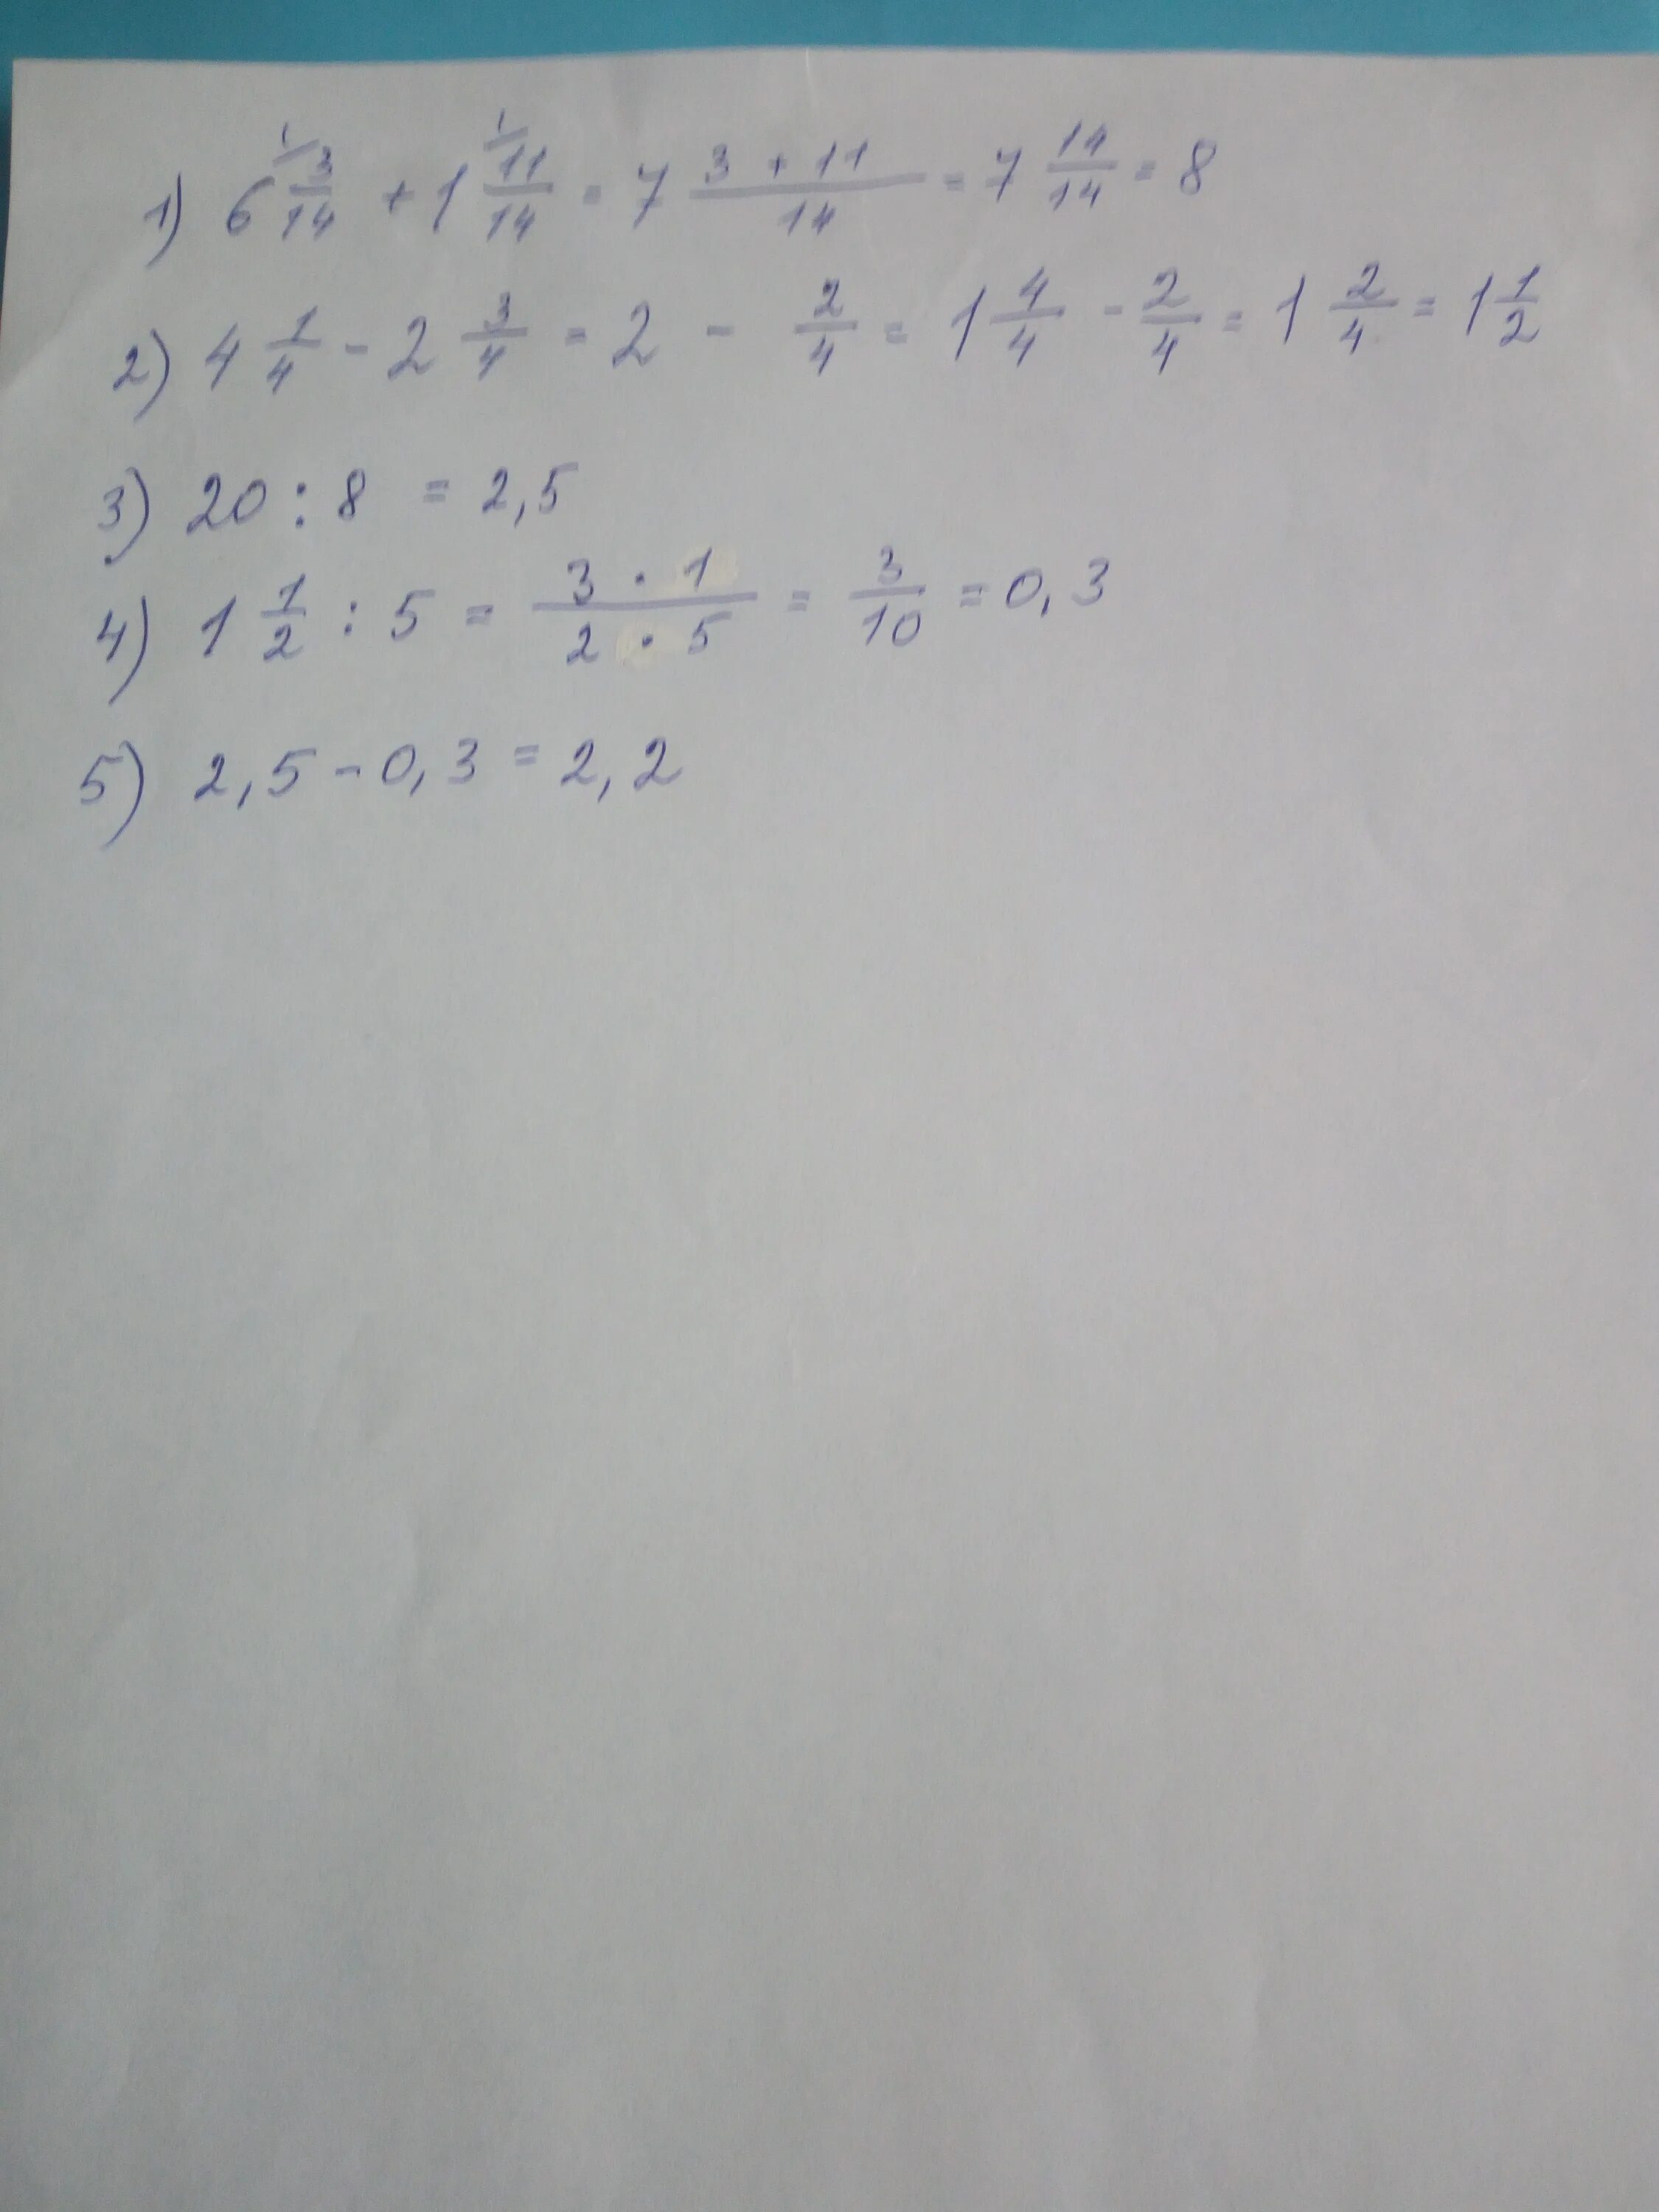 1) 6 3/14 + 1 11/14 = 7 (3 + 11)/14 = 7 14/14 = 8
2) 4 1/4 - 2 3/4 = 2 - 2/4 = 1 4/4 - 2/4 = 1 2/4 = 1 1/2
3) 20 : 8 = 2,5
4) 1 1/2 : 5 = (3 · 1)/(2 · 5) = 3/10 = 0,3
5) 2,5 - 0,3 = 2,2